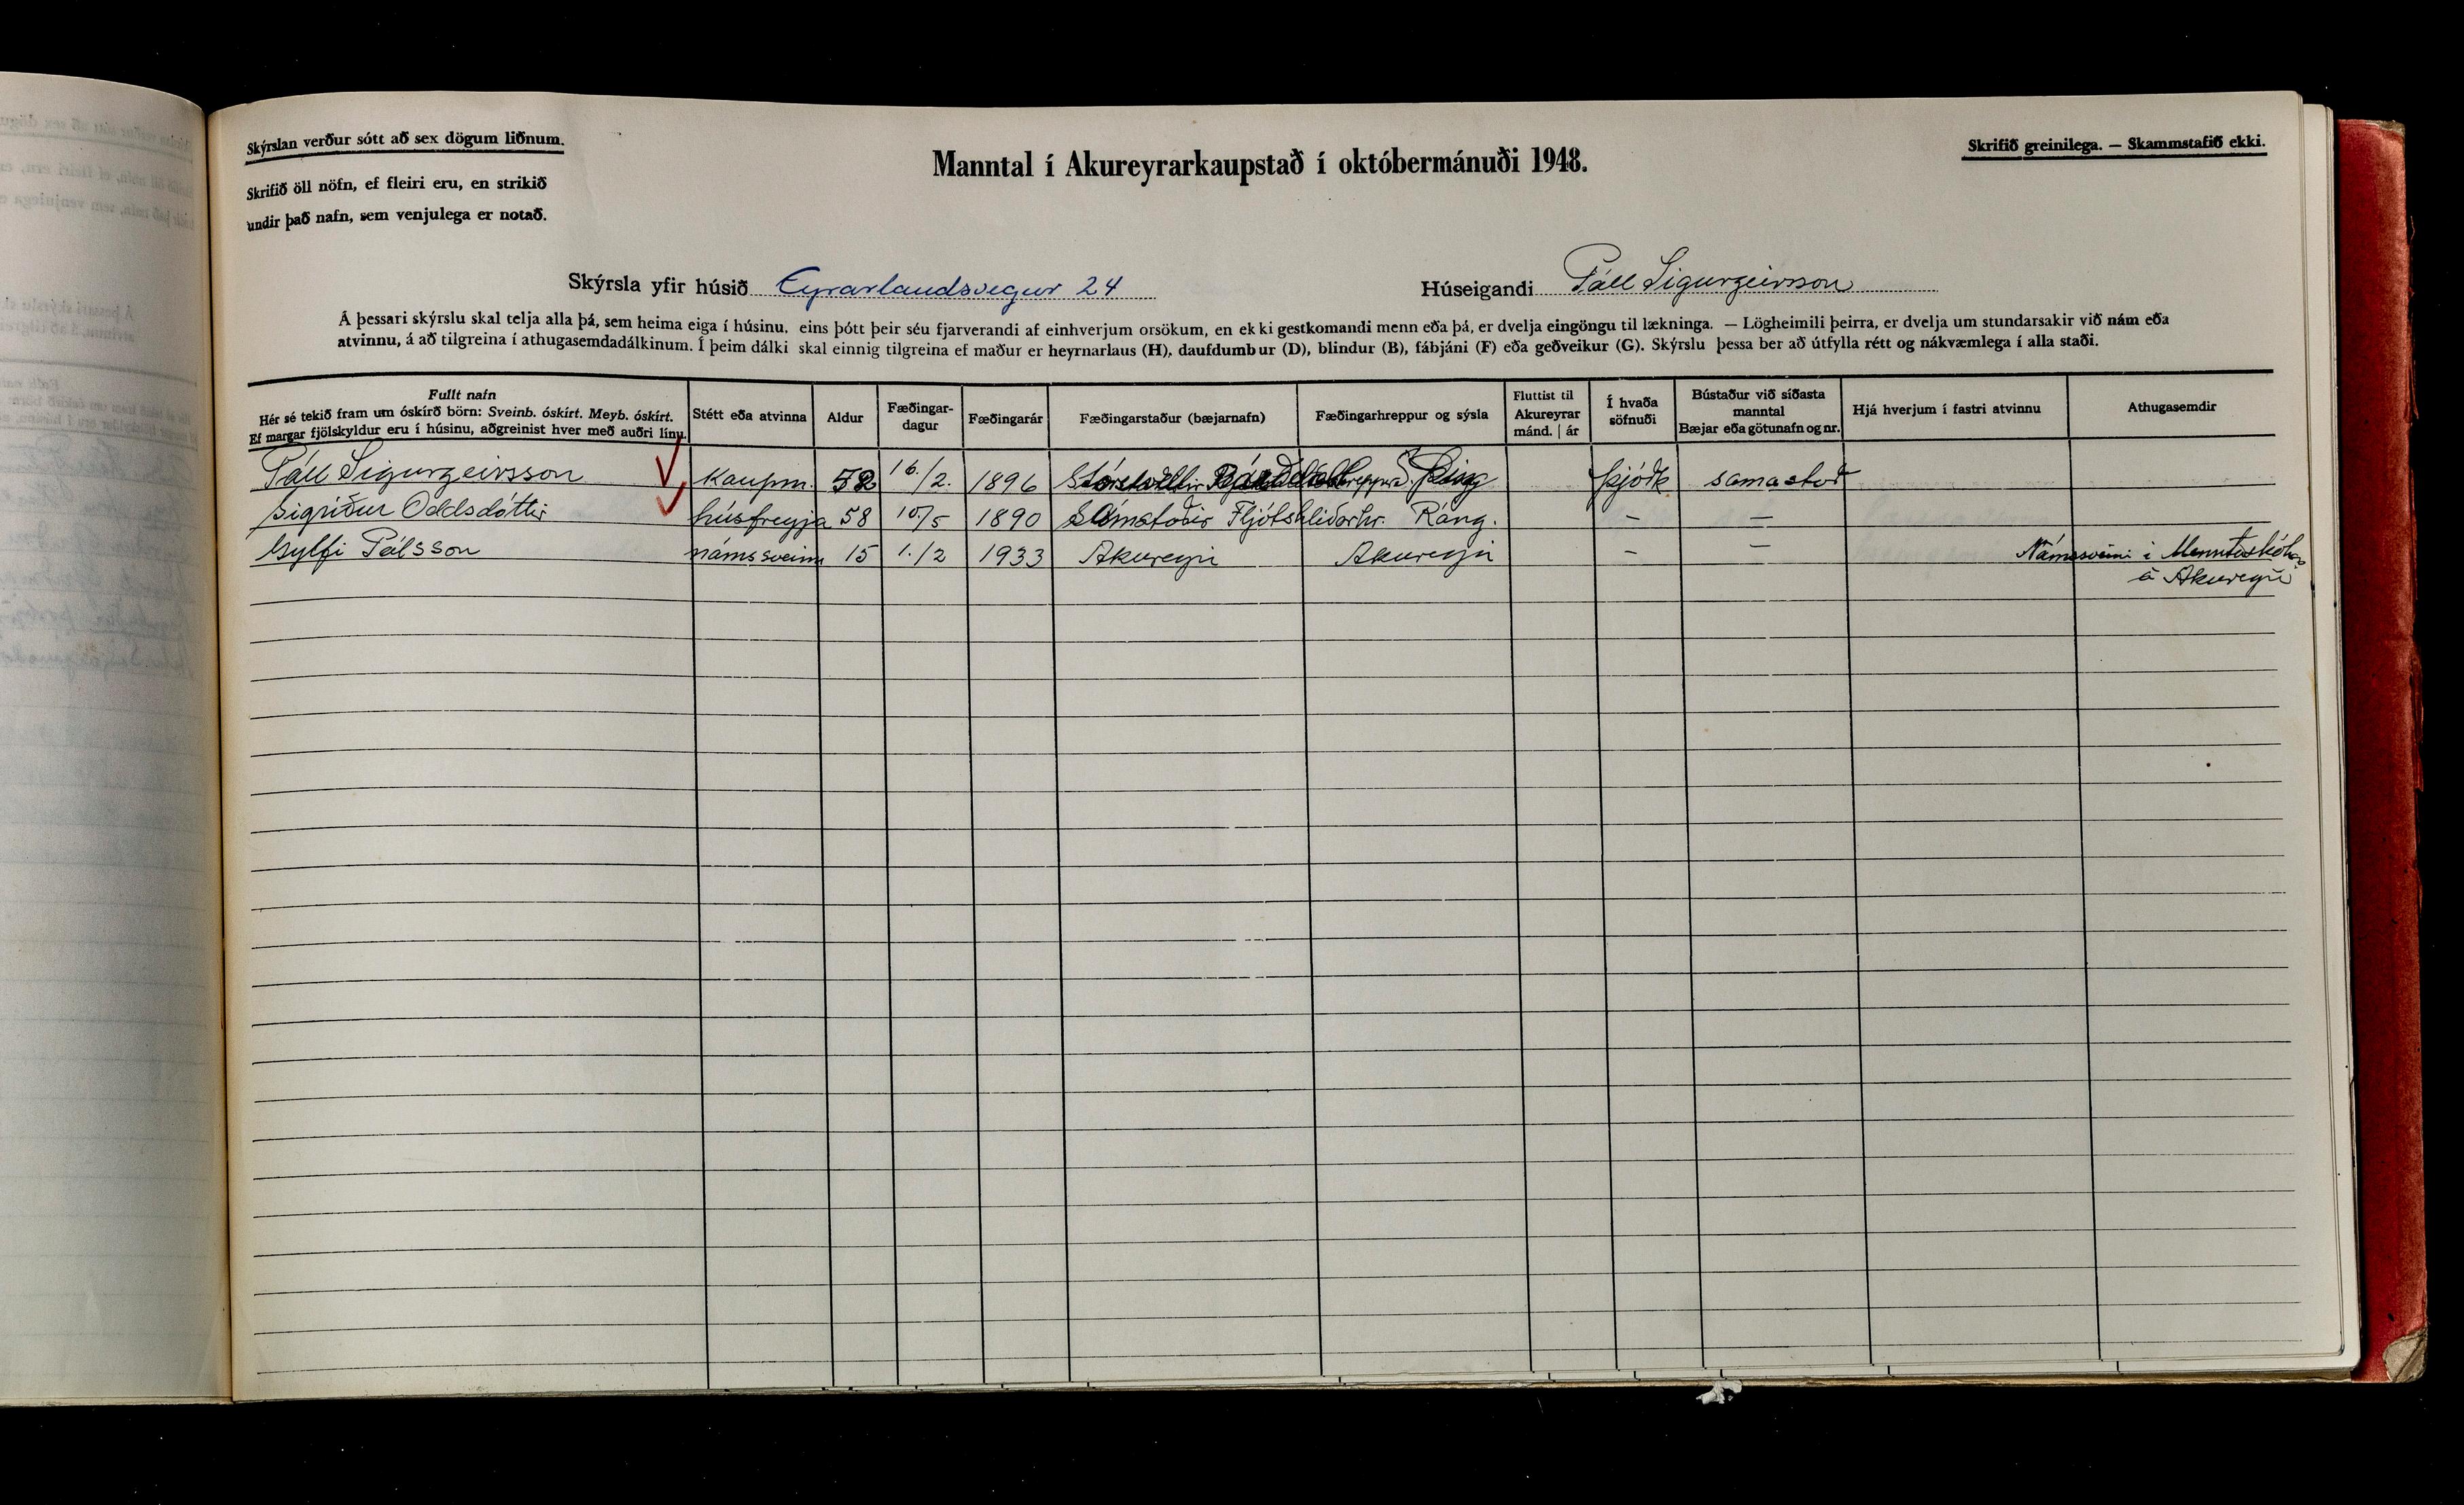 Skýrslan verður sótt að sex dögum liðnum.
Skrifið öll nöfn, ef fleiri eru, en strikið
undir það nafn, sem venjulega er notað.
Manntal í Akureyrarkaupstað í októbermánuði 1948.
Skrifið greinilega. — Skammstafið ekki.
Skýrsla yfir húsið Eyrarlandsvegur 24
Húseigandi Páll Sigurgeirsson
Á þessari skýrslu skal telja alla þá, sem heima eiga í húsinu, eins þótt þeir séu fjarverandi af einhverjum orsökum, en ekki gestkomandi menn eða þá, er dvelja eingöngu til lækninga. — Lögheimili þeirra, er dvelja um stundarsakir við nám eða
atvinnu, á að tilgreina í athugasemdadálkinum. Í þeim dálki skal einnig tilgreina ef maður er heyrnarlaus (H), daufdumbur (D), blindur (B), fábjáni (F) eða geðveikur (G). Skýrslu þessa ber að útfylla rétt og nákvæmlega í alla staði.
Fullt nafn
Hér sé tekið fram um óskírð börn: Sveinb. óskírt. Meyb. óskírt.
Ef margar fjölskyldur eru í húsinu, aðgreinist hver með auðri línu.
Stétt eða atvinna
Aldur
Fæðingar-
dagur
Fæðingarár
Fæðingarstaður (bæjarnafn)
Fæðingarhreppur og sýsla
Fluttist til
Akureyrar
mánd. | ár
Í hvaða
söfnuði
Bústaður við síðasta
manntal
Bæjar eða götunafn og nr.
Hjá hverjum í fastri atvinnu
Athugasemdir
Páll Sigurgeirsson kaupm. 52 16./2. 1896 Stóruvellir Þing þjóðk samastað
Sigríður Oddsdóttir húsfreyja 58 10./5 1890 Sámstaðir Fljótshlíðarhr. Rang. – –
Gylfi Pálsson námssveinn 15 1./2 1933 Akureyri Akureyri – – Námssveinn í Menntaskólan.
á Akureyri